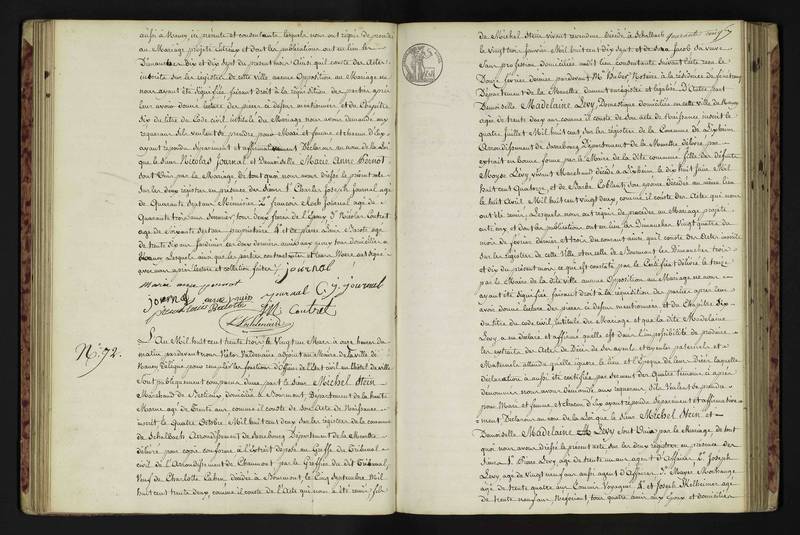 aussi à Nancy, ici présente et consentante, lesquels nous ont requis de procéder
au Mariage projeté entr'eux et dont les publications ont eu lieu les
Dimanches Dix et dix sept du présent mois Ainsi qu'il conste des Actes
inscrits sur les registres de cette ville aucune Opposition au Mariage ne
nous ayant été signifiée, faisant droit à la réquisition des parties après
leur avoir donné lecture des pièces ci dessus mentionnées, et du Chapitre
Six du titre du code civil, intitulé du Mariage nous avons demandé aux
requérans s'ils veulent se prendre pour Mari et femme et chacun d'eux
ayant répondu séparément et affirmativement Déclarons au nom de la Loi
que le Sieur Nicolas Journal et Demoiselle Marie Anne
sont Unis par le Mariage, de tout quoi nous avons dressé le présent acte
Sur les deux registres en présence des Sieurs 1° Charles Joseph Journal agé
de Quarante sept ans 2° françois Journal agé de
Quarante trois ans tous deux frères de l'Epoux 3° Nicolas Contret
agé de Soixante sept ans propriétaire 4° et de pierre
de trente six ans Jardinier les deux derniers amis aux époux tous domiciliés à
Nancy Lesquels ainsi que les parties contractantes et leurs Mères ont signé
avec nous après lecture et collation faites. Journal
Marie anne
journal C. J. journal
Contret
N° 72.
L'An Mil huit cent trente trois le Vingt un Mars à onze heures du
matin pardevant nous Victor adjoint au Maire de la ville de
Nancy délégué pour remplir les fonctions d'officier de l'Etat civil en l'hôtel de ville
Sont publiquement comparus d'une part le Sieur Michel Stein
Marchand de domicilié à Bourmont, Département de la haute
Marne agé de trente ans comme il conste de son Acte de Naissance
inscrit le Quatre Octobre Mil huit cent deux sur les registres de la commune
de Schalbach Arrondissement de Sarrebourg Département de la Meurthe
délivré par copie conforme à l'extrait déposé au Greffe du Tribunal
civil de l'Arrondissement de Chaumont par le Greffier du dit Tribunal,
Veuf de Charlotte Cahen décédée à Bourmont, le Cinq Septembre Mil
huit cent trente deux, comme il conste de l'Acte qui nous a été remis, fils
de Michel Stein vivant décédé à Schalbach
le Vingt trois Janvier Mil huit cent dix sept et de Jacob sa veuve
Sans profession domiciliée audit lieu consentante suivant acte reçu le
Douze février dernier pardevant Me Notaire à la résidence de fénétrange
Département de la Meurthe dument enregistré et légalisé. D'autre part
Demoiselle Madelaine Lévy Domestique domiciliée en cette ville de Nancy
agée de trente deux ans comme il conste de son acte de Naissance inscrit le
quatre Juillet Mil huit cent sur les registres de la Commune de Lixheim
Arrondissement de Sarrebourg Département de la Meurthe délivré par
extrait en bonne forme par le Maire de la dite commune fille des défunts
Moyse Lévy vivant Marchand décédé à Lixheim le dix huit Juin Mil
huit cent Quatorze, et de son épouse décédée au même lieu
le huit Avril Mil huit cent vingt deux, comme il conste des Actes qui nous
ont été remis, Lesquels nous ont requis de procéder au Mariage projeté
entr'eux et dont les publications ont eu lieu, les Dimanches Vingt quatre du
mois de février dernier et trois du courant ainsi qu'il conste des Actes inscrits
Sur les registres de cette Ville et en celle de Bourmont les Dimanches trois
et dix du présent mois, ce qui est constaté par le Certificat délivré le treize
par le Maire de la dite ville aucune Opposition au Mariage ne nous
ayant été signifiée faisant droit à la réquisition des parties après leur
avoir donné lecture des pièces ci dessus mentionnées et du Chapitre Six
du titre du code civil, intitulé du Mariage et que la dite Madelaine
Lévy a déclaré et affirmé qu'elle est dans l'impossibilité de produire
les extraits des Actes de Décès de ses ayeuls et ayeules paternels et
Maternels attendu qu'elle ignore le lieu et l'Epoque de leur Décès laquelle
déclaration a aussi été certifiée par serment des Quatre témoins ci après
dénommés nous avons demandé aux requérans s'ils Veulent se prendre
pour Mari et femme et chacun d'eux ayant répondu Séparément et affirmative
-ment Déclarons au nom de la Loi que le Sieur Michel Stein et
Demoiselle Madelaine Lévy sont Unis par le Mariage, de tout
quoi nous avons dressé le présent acte Sur les deux registres en présence des
Sieurs 1° Pierre Lévy, agé de trente un ans agent d'Affaires, 2° Joseph
Lévy, agé de vingt neuf ans aussi agent d'Affaires 3° Mayer
agé de trente quatre ans Commis Voyageur 4° et Joseph agé
de trente neuf ans, Négociant, tous quatre amis aux époux et domiciliés